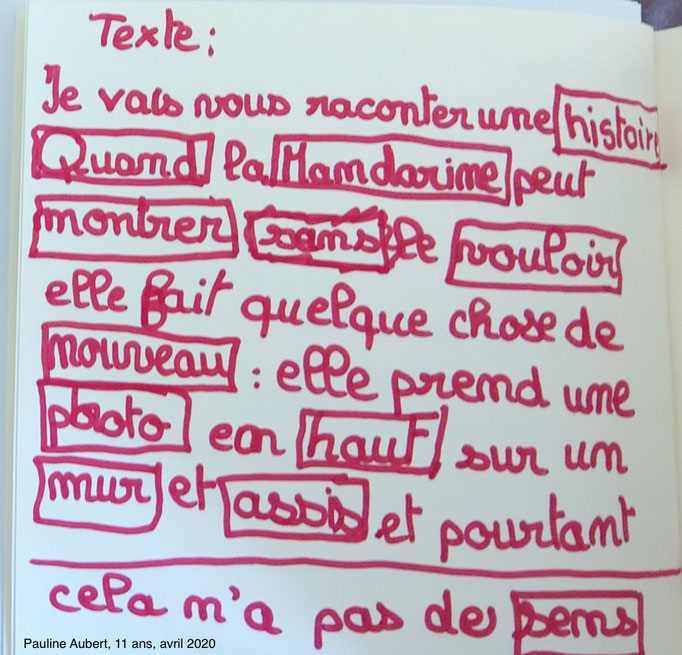 Texte :
Je vais vous raconter une histoire
Quand la Mandarine peut
montrer sans le vouloir
elle fait quelque chose de
nouveau : elle prend une
photo en haut sur un
mur et assis et pourtant
cela n'a pas de sens
Pauline Aubert, 11 ans, avril 2020